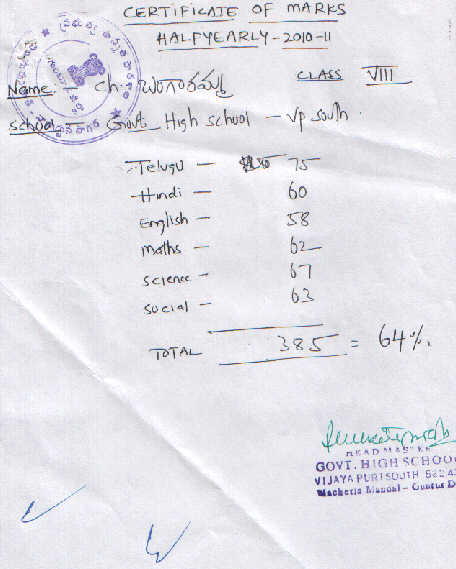 CERTIFICATE OF MARKS
HALFYEARLY - 2010-11
CLASS VIII
Name - Ch. బంగారమ్మ
School - Govt High school - Vp south.
Telugu - 75
Hindi - 60
English - 58
maths - 62
science - 67
social - 63
TOTAL 385 = 64%.
HEAD MASTER
GOVT. HIGH SCHOOL
VIJAYA PURI SOUTH
Macherla Mandal - Guntur D